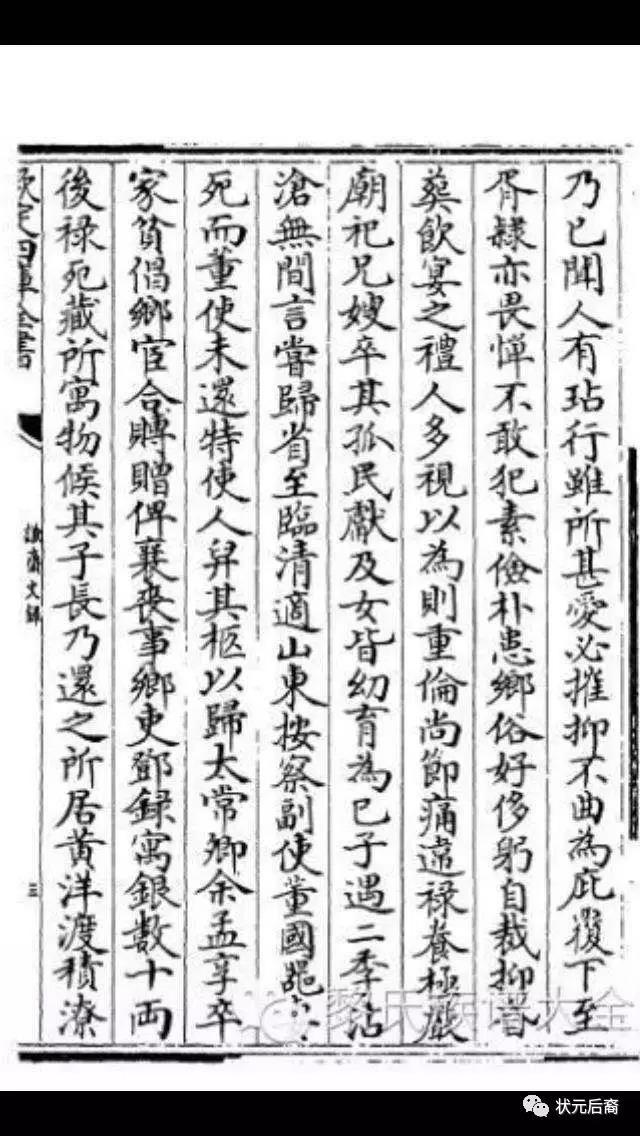 乃已聞人有玷行雖所甚愛必摧抑不曲為庇覆下至
胥隸亦畏憚不敢犯素儉朴患鄉俗好侈躬自裁抑昏
葬飲宴之禮人多視以為則重倫尚節痛違祿養極嚴
廟祀兄嫂卒其孤民獻及女皆幼育為已子遇二季沾
滄無間言嘗歸省至臨清適山東按察副使董國器
死而董使未還特使人舁其柩以歸太常卿余孟享卒
家貧倡鄉宦合賻贈俾襄喪事鄉吏鄧録寓銀數十両
後祿死藏所寓物候其子長乃還之所居黄洋渡積潦
欽定四庫全書
謙齋文録
三
大全
状元后裔